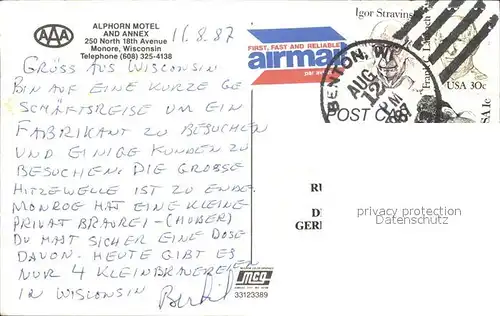 AAA
ALPHORN MOTEL
AND ANNEX
250 North 18th Avenue
Monore, Wisconsin
Telephone (608) 325-4138
11.8.87
GRÜSS AUS WISCONSIN
BIN AUF EINE KURZE GE
SCHÄFTSREISE UM EIN
FABRIKANT ZU BESUCHEN
UND EINIGE KUNDEN ZU
BESUCHEN. DIE GROSSE
HITZEWELLE IST ZU ENDE.
MONROE HAT EINE KLEINE
PRIVAT BRAUREI-(HUBER)
DU HAST SICHER EINE DOSE
DAVON. HEUTE GIBT ES
NUR 4 KLEINBRAUEREIEN
IN WISCONSIN
FIRST, FAST AND RELIABLE
airmail
par av
BENTON, WI
AUG
12
PM
1987
Igor Stravins
Frank C. Laubach
USA 30c
USA 1c
POST C
RU
D
GER
privacy protection
Datenschutz
mcg
33123389